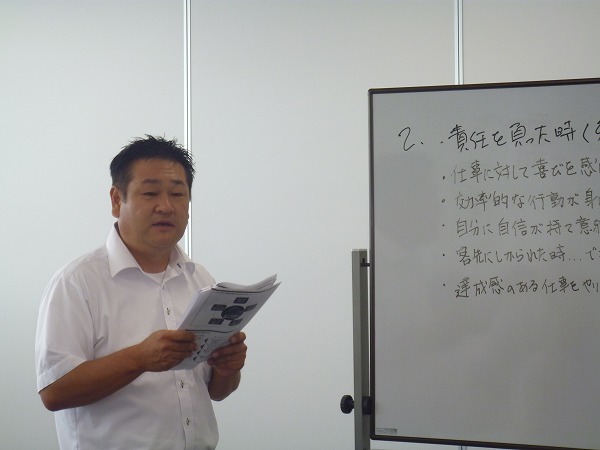 2. ・責任を負った時く
・仕事に対して喜びを感
・効率的な行動が身
・自分に自信が持て意
・客先にしかられた時…で
・達成感のある仕事をやり